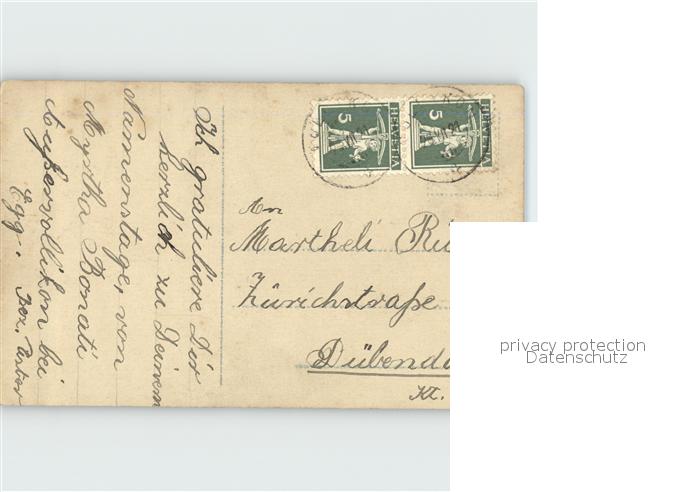 Ich gratuliere Dir
herzlich zu Deinem
Namenstage, von
Myrtha Bonati
Außervollikon bei
Egg.
HELVETIA
5
HELVETIA
5
An
Martheli
Zürichstraße
Dübendo
Kt.
privacy protection
Datenschutz